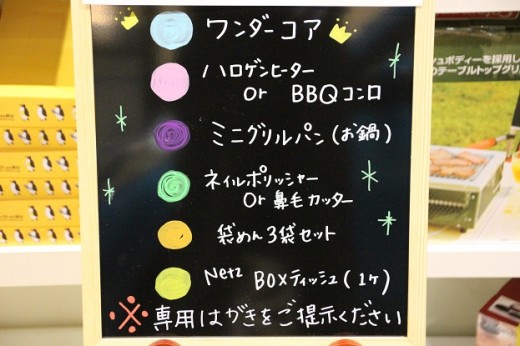 ワンダーコア
ハロゲンヒーター
or BBQコンロ
ミニグリルパン(お鍋)
ネイルポリッシャー
or 鼻毛カッター
袋めん3袋セット
Netz BOXティッシュ(1ヶ)
※専用はがきをご提示ください
シュボディーを採用し
のテーブルトップグリ